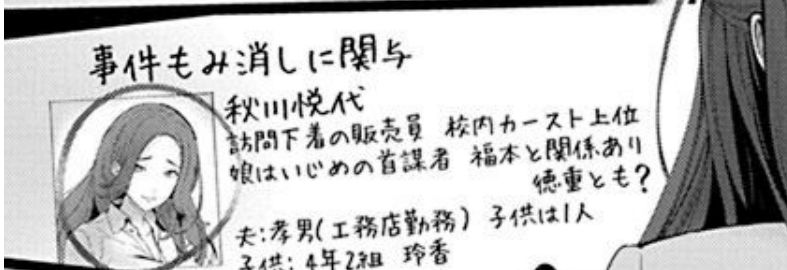 事件もみ消しに関与
秋川悦代
訪問下着の販売員 校内カースト上位
娘はいじめの首謀者 福本と関係あり
徳重とも?
夫:孝男(工務店勤務) 子供は1人
子供:4年2組 玲香